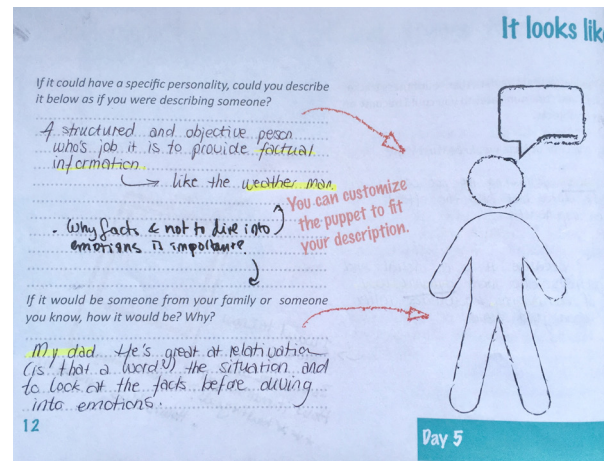 It looks like
If it could have a specific personality, could you describe
it below as if you were describing someone?
A structured and objective person
who's job it is to provide factual
information
like the weather man.
You can customize
the puppet to fit
your description.
. Why facts & not to dive into
emotions is importance?
If it would be someone from your family or someone
you know, how it would be? Why?
My dad. He's great at relativation
(is that a word?) the situation and
to look at the facts before diving
into emotions.
12
Day 5